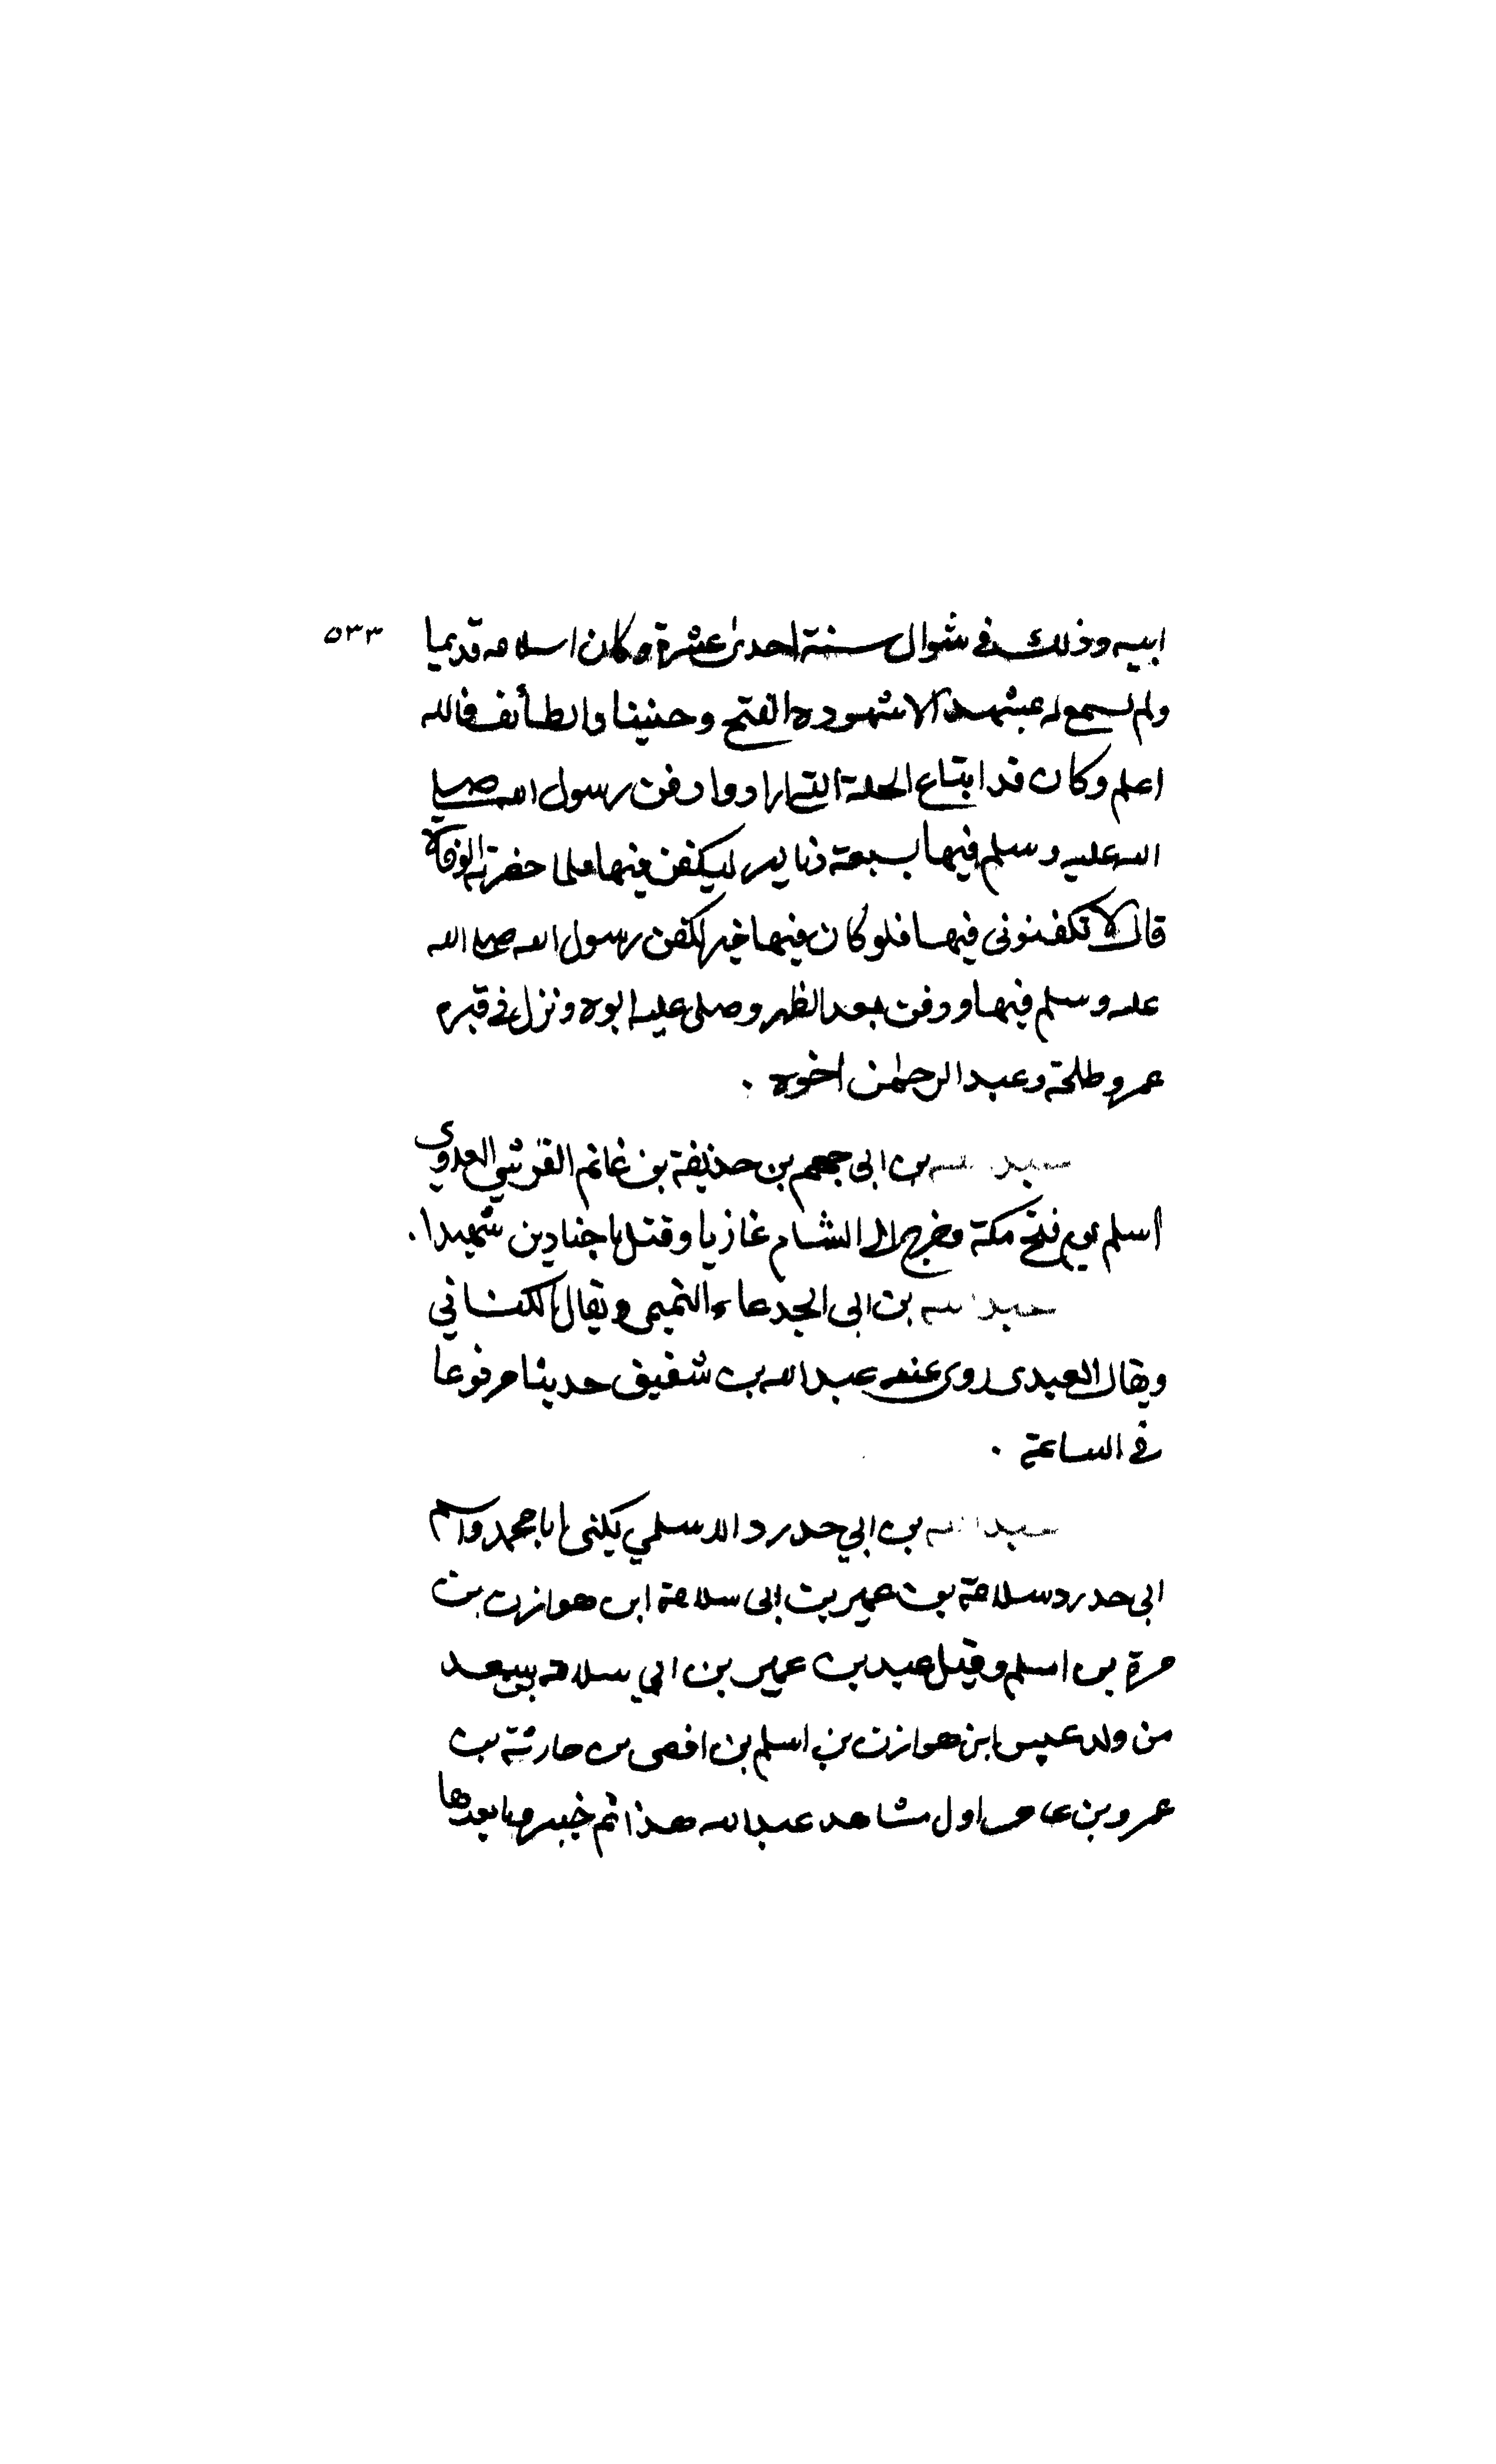 ابيه وذلك في شوال سنة احدى عشرة وكان اسلامه قديما ٥٣٣
ولم يسمع له بمشهد الا شهوده الفتح وحنينا والطائف فالله
اعلم وكان قد ابتاع الحلة التي ارادوا دفن رسول الله صلى
الله عليه وسلم فيها بسبعة دنانير ليكفن فيها فلما حضرته الوفاة
قال لا تكفنونى فيها فلو كان فيها خير لكفن رسول الله صلى الله
عليه وسلم فيها ودفن بعد الظهر وصلى عليه ابوه ونزل في قبره
عمر وطلحة وعبد الرحمٰن اخوه .
عبد الله بن ابى جهم بن حذيفة بن غانم القرشي العدوي
أسلم يوم فتح مكة وخرج الى الشام غازيا وقتل باجنادين شهيدا .
عبد الله بن ابى الجدعاء التميمى ويقال الكناني
ويقال العبدى روى عنه عبد الله بن شقيق حديثا مرفوعا
في الساعة .
عبد الله بن ابي حدرد الاسلمي يكنى ابا محمد واسم
ابى حدرد سلامة بن عمير بن ابى سلامة ابن هوازن بن
مرة بن اسلم وقيل عبيد بن عمير بن ابي سلامة بن سعد
من ولد عبس ابن هوازن بن اسلم بن افصى بن حارثة بن
عمرو بن عامر اول مشاهد عبد الله هذا ثم خيبر وما بعدها